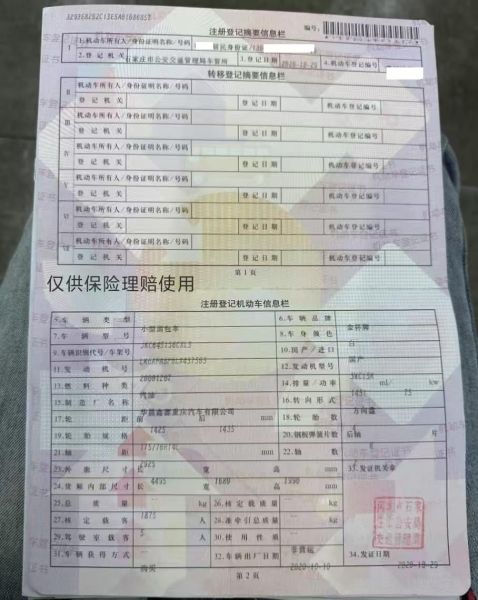 注册登记摘要信息栏
编号:
I
1.机动车所有人/身份证明名称/号码 居民身份证/
2.登记机关 石家庄市公安交通管理局车管所 3.登记日期 2020-10-29 4.机动车登记编号
转移登记摘要信息栏
II 机动车所有人/身份证明名称/号码
登记机关 登记日期 机动车登记编号
III 机动车所有人/身份证明名称/号码
登记机关 登记日期 机动车登记编号
IV 机动车所有人/身份证明名称/号码
登记机关 登记日期 机动车登记编号
V 机动车所有人/身份证明名称/号码
登记机关 登记日期 机动车登记编号
VI 机动车所有人/身份证明名称/号码
登记机关 登记日期 机动车登记编号
VII 机动车所有人/身份证明名称/号码
登记机关 登记日期 机动车登记编号
第1页
仅供保险理赔使用
注册登记机动车信息栏
5.车辆类型 小型面包车 6.车辆品牌 金杯牌
7.车辆型号 8.车身颜色 白
9.车辆识别代号/车架号 10.国产/进口 国产
11.发动机号 12.发动机型号
13.燃料种类 汽油 14.排量/功率 ml/ kw
15.制造厂名称 华晨鑫源重庆汽车有限公司 16.转向形式 方向盘
17.轮距 前 1425 后 1435 mm 18.轮胎数 4
19.轮胎规格 20.钢板弹簧片数 后轴 片
21.轴距 2925 mm 22.轴数
23.外廓尺寸 长 4495 宽 1680 高 1990 mm 33.发证机关章
24.货厢内部尺寸 长 宽 高 mm
25.总质量 1875 kg 26.核定载质量 kg
27.核定载客 5 人 28.准牵引总质量 kg
29.驾驶室载客 人 30.使用性质 非营运
31.车辆获得方式 购买 32.车辆出厂日期 2020-10-10 34.发证日期 2020-10-29
第2页